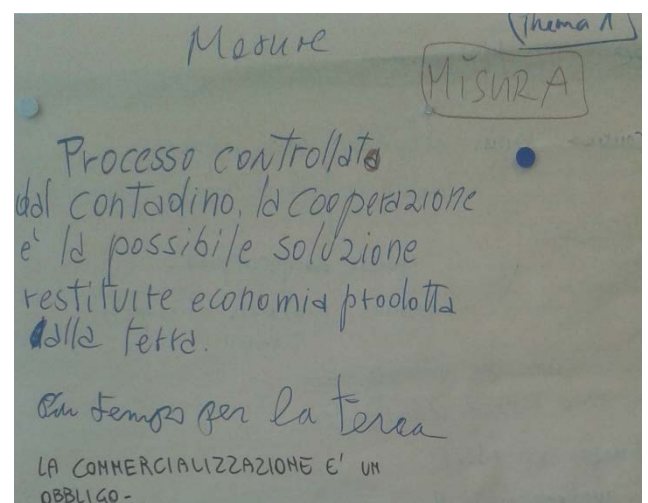 Mesure
Thema 1
MISURA
Processo controllato
dal contadino, la cooperazione
e' la possibile soluzione
restituire economia prodotta
dalla terra.
tempo per la terra
LA COMMERCIALIZZAZIONE E' UN
OBBLIGO-